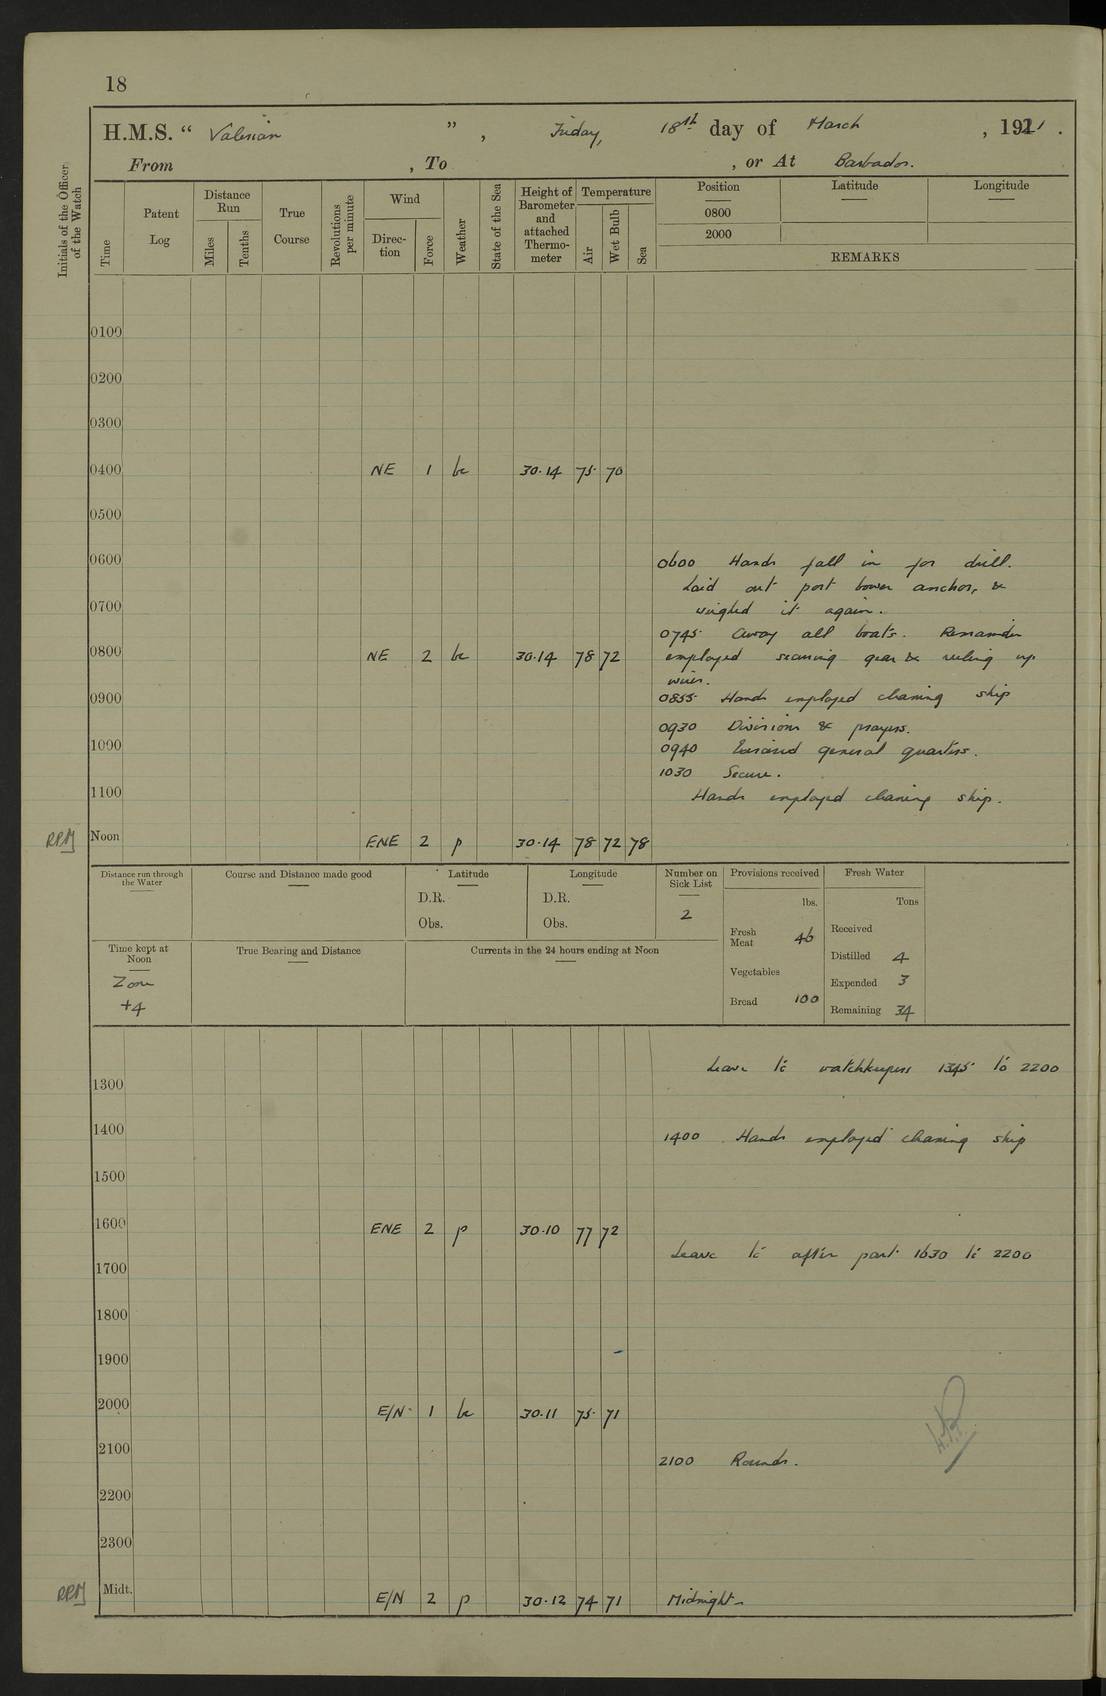 18
H.M.S. “ Valerian ” , Friday, 18th day of March , 1921 .
From , To , or At Barbados.
Initials of the Officer of the Watch
Time
Patent Log
Distance Run
Miles
Tenths
True Course
Revolutions per minute
Wind
Direc- tion
Force
Weather
State of the Sea
Height of Barometer and attached Thermo- meter
Temperature
Air
Wet Bulb
Sea
Position
0800
2000
Latitude
Longitude
REMARKS
0100
0200
0300
0400 NE 1 bc 30.14 75 70
0500
0600 0600 Hands fall in for drill.
Laid out port bower anchor, &
0700 weighed it again.
0745 Away all boats. Remainder
0800 NE 2 bc 30.14 78 72 employed securing gear & reeling up
wires.
0900 0855 Hands employed cleaning ship
0930 Divisions & prayers.
1000 0940 Exercised general quarters.
1030 Secure.
1100 Hands employed cleaning ship.
RPM Noon ENE 2 p 30.14 78 72 78
Distance run through the Water
Course and Distance made good
Latitude
D.R.
Obs.
Longitude
D.R.
Obs.
Number on Sick List
2
Provisions received
lbs.
Fresh Meat 46
Vegetables
Bread 100
Fresh Water
Tons
Received
Distilled 4
Expended 3
Remaining 34
Time kept at Noon
Zone
+4
True Bearing and Distance
Currents in the 24 hours ending at Noon
Leave to watchkeepers 1345 to 2200
1300
1400 1400 Hands employed cleaning ship
1500
1600 ENE 2 p 30.10 77 72
Leave to after part 1630 to 2200
1700
1800
1900
2000 E/N 1 bc 30.11 75 71
2100 2100 Rounds.
2200
2300
RPM Midt. E/N 2 p 30.12 74 71 Midnight